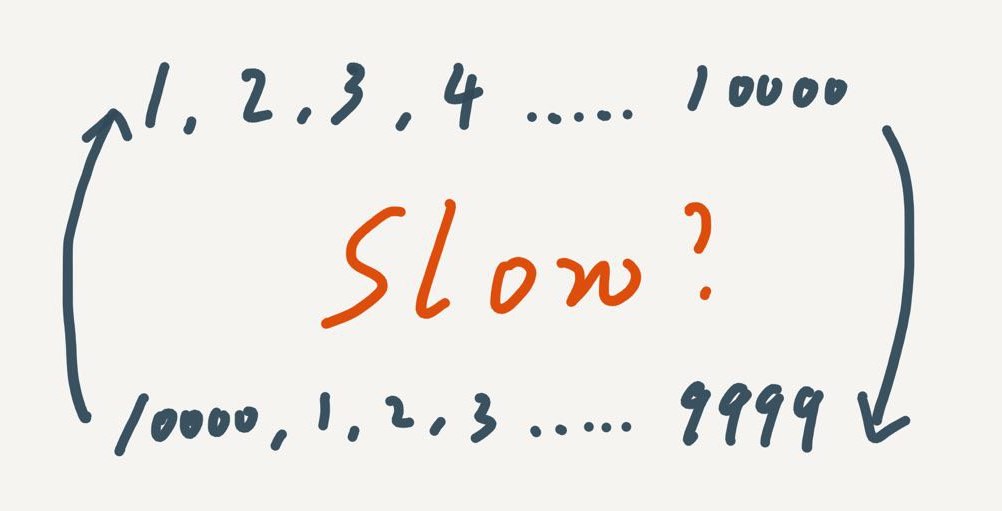 1, 2, 3, 4 ..... 10000
Slow?
10000, 1, 2, 3 ..... 9999